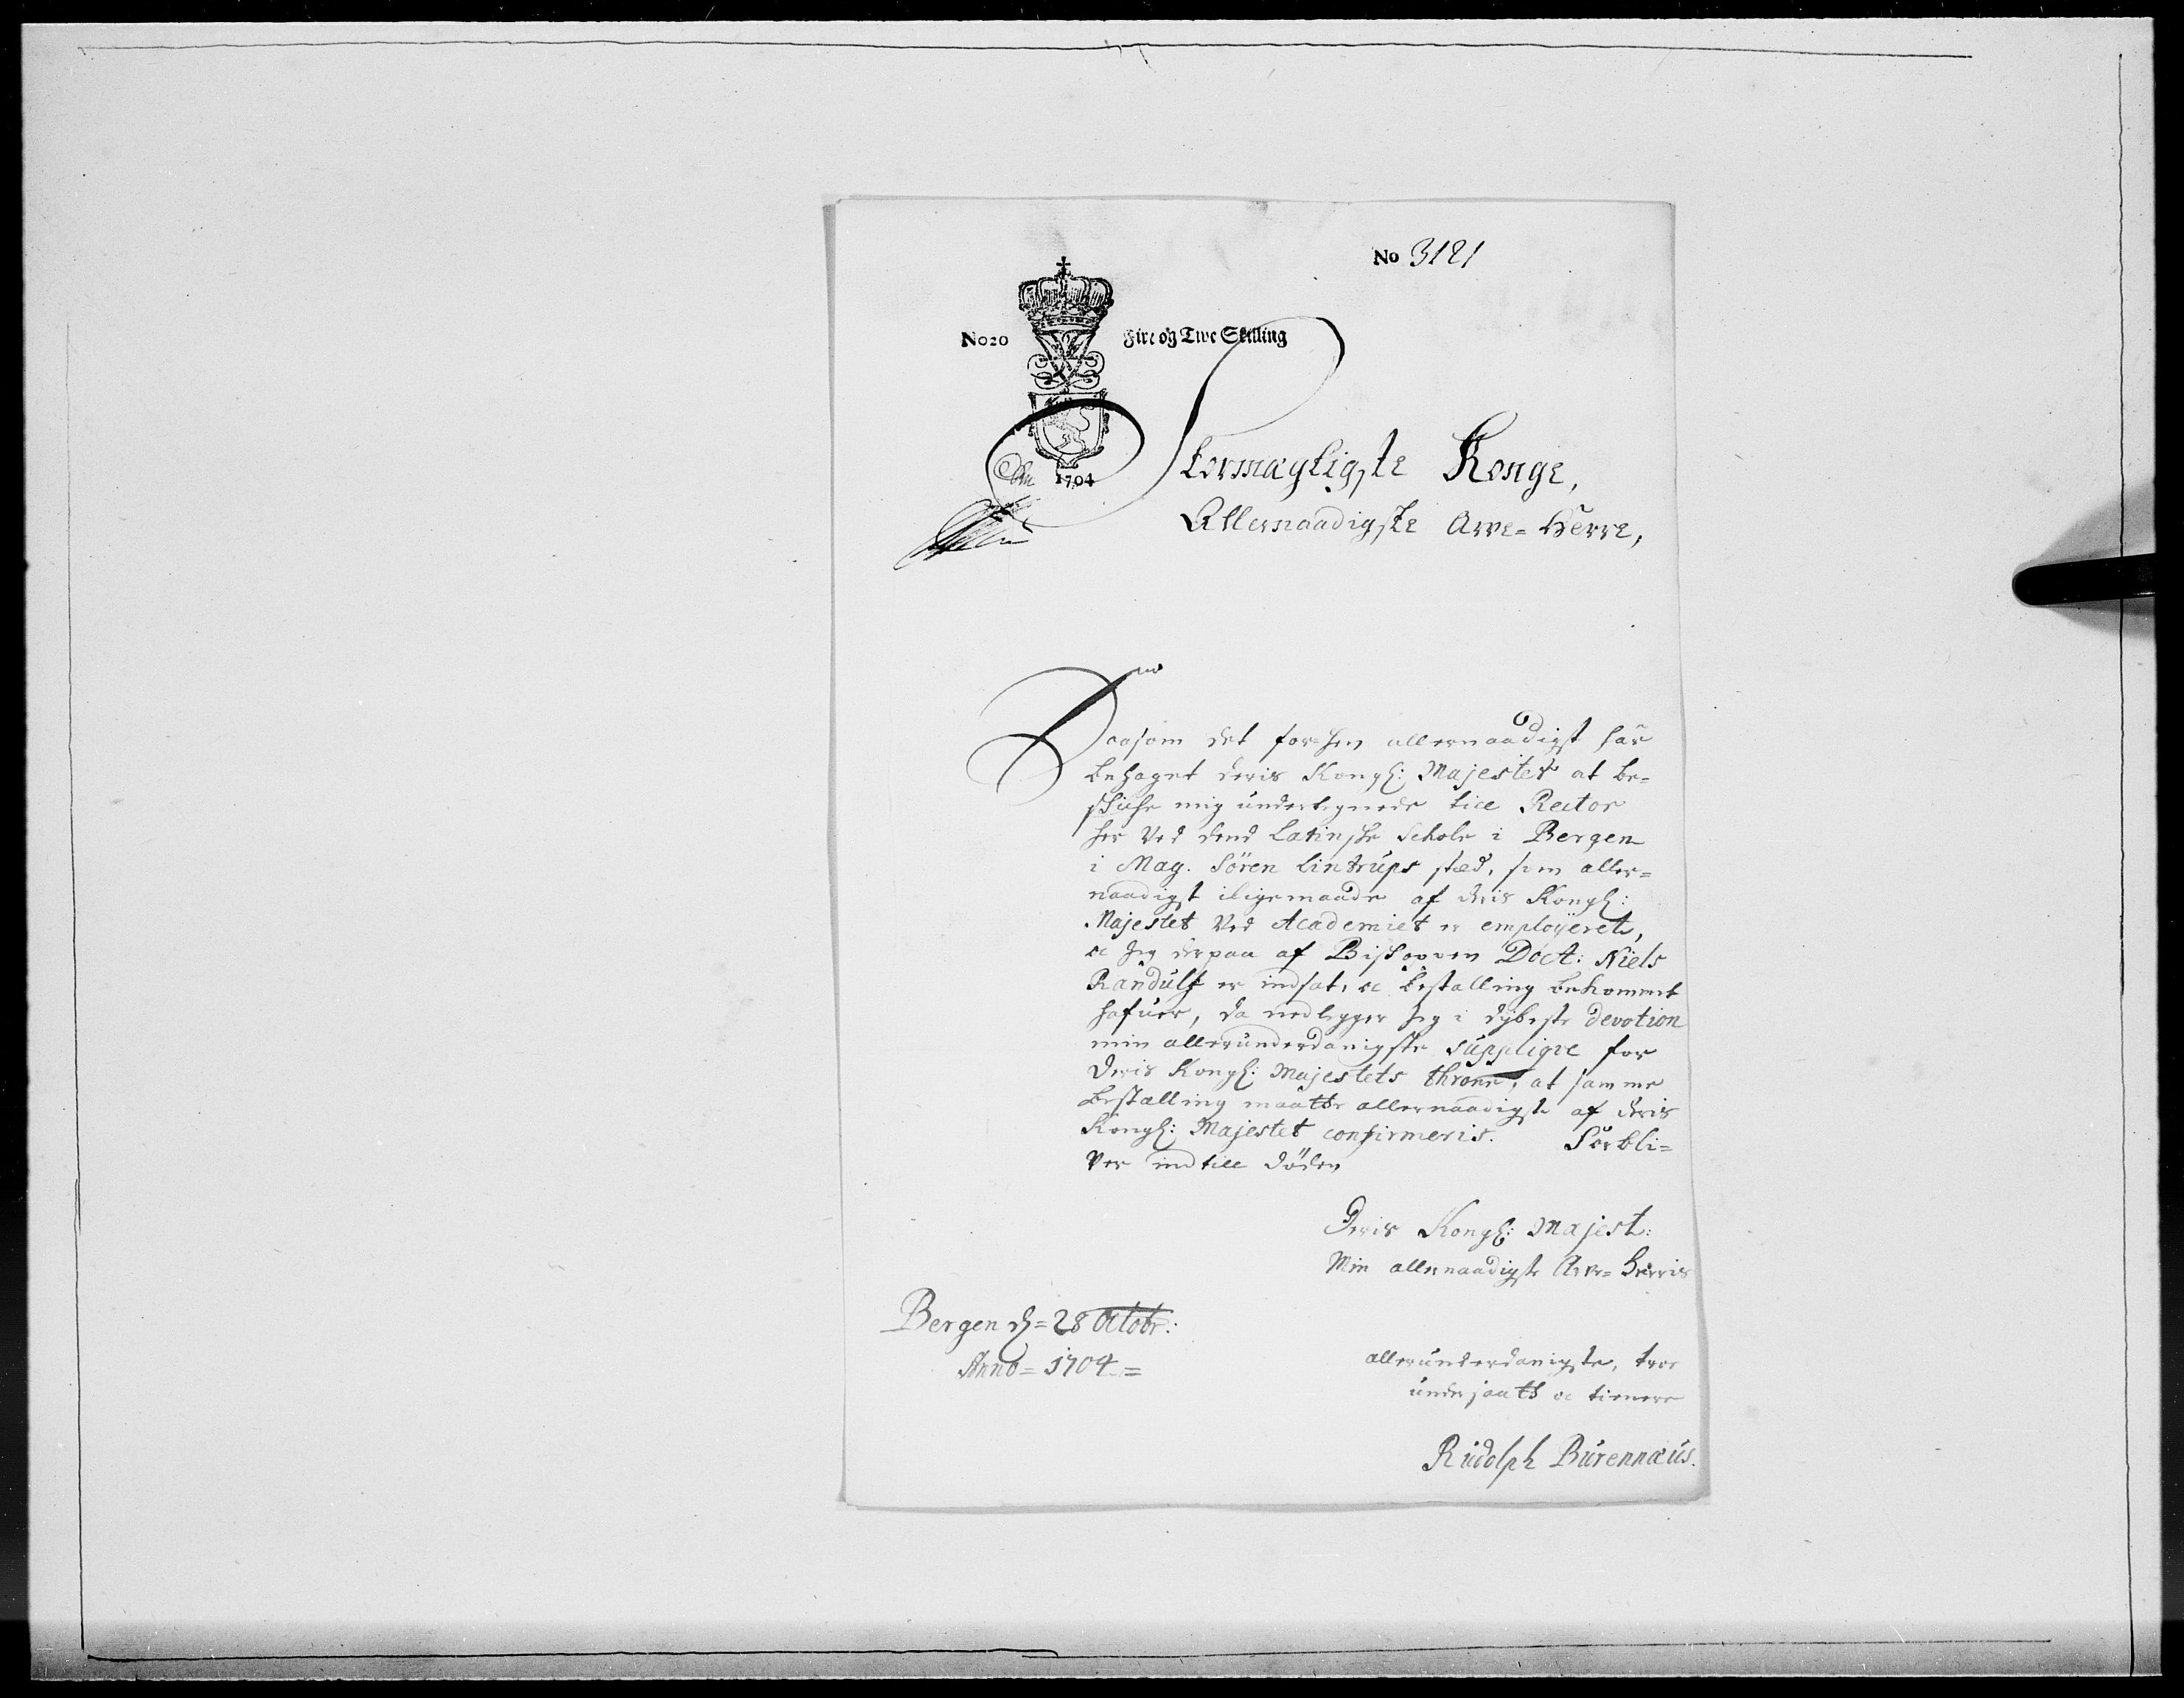 No 3121
No 20 Fire og Tive Skilling
1704
Stormægtigste Konge,
Allernaadigste Arve-Herre,
Saasom det forhen allernaadigst har
behaget deris Kongl: Majestet at be-
skicke mig underteignede till Rector
her Ved dend Latinske Schole i Bergen
i Mag. Sören Lintrups sted, som aller-
naadigst iligemaade af deris Kongl:
Majestet Ved Academiet er employeret,
oc jeg derpaa af Biskoppen Doct: Niels
Randulf er indsat, oc bestalling bekommet
hafuer, da nedlegger jeg i dybeste devotion
min allerunderdanigste supplique for
Deris Kongl: Majestets throne, at samme
bestalling maatte allernaadigst af deris
Kongl: Majestet confirmeris. Forbli-
Ver ind till döden
Deris Kongl: Majest:
Min allernaadigste Arve-Herris
Bergen d= 28 Octobr:
Anno= 1704=
allerunderdanigste, troe
undersaatt oc tienere
Rudolph Burennæus.